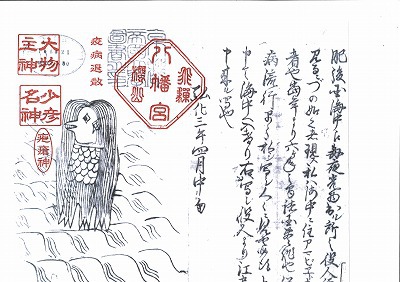 肥後国海中江毎夜光物出ル所之役人行
見るニづの如く者現ス私ハ海中ニ住アマビヱト
者也当年より六ヶ年之間諸国豊作也併
病流行早々私ヲ写シ人々ニ見セ候得と
申て海中へ入けり右写シ役人より江戸
申来ル写也
弘化三年四月中旬
飛騨
八幡宮
櫻山
疫病退散
大物主神
少彦名神
疱瘡神